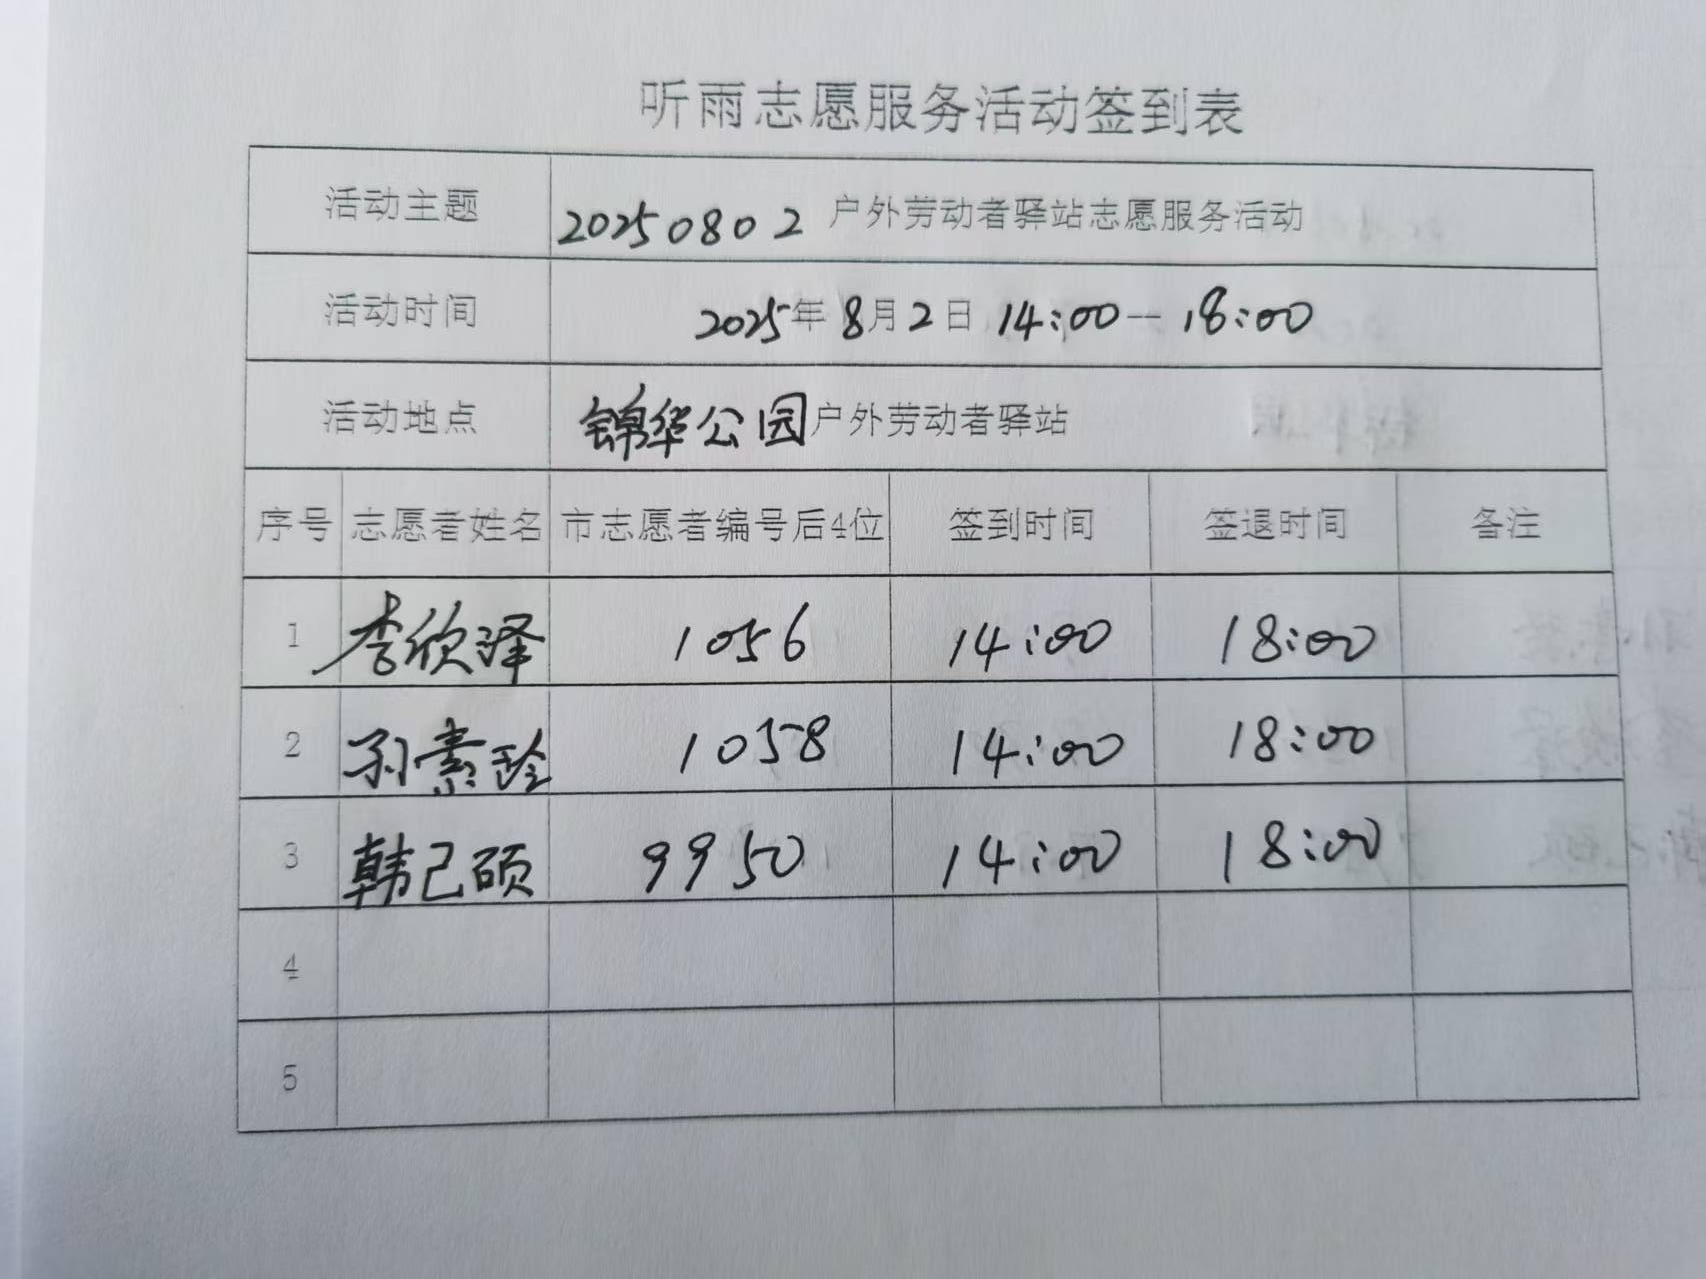 听雨志愿服务活动签到表
活动主题 20250802 户外劳动者驿站志愿服务活动
活动时间 2025年8月2日 14:00—18:00
活动地点 锦华公园户外劳动者驿站
序号 志愿者姓名 市志愿者编号后4位 签到时间 签退时间 备注
1 李欣泽 1056 14:00 18:00
2 孙素玲 1058 14:00 18:00
3 韩己硕 9950 14:00 18:00
4
5